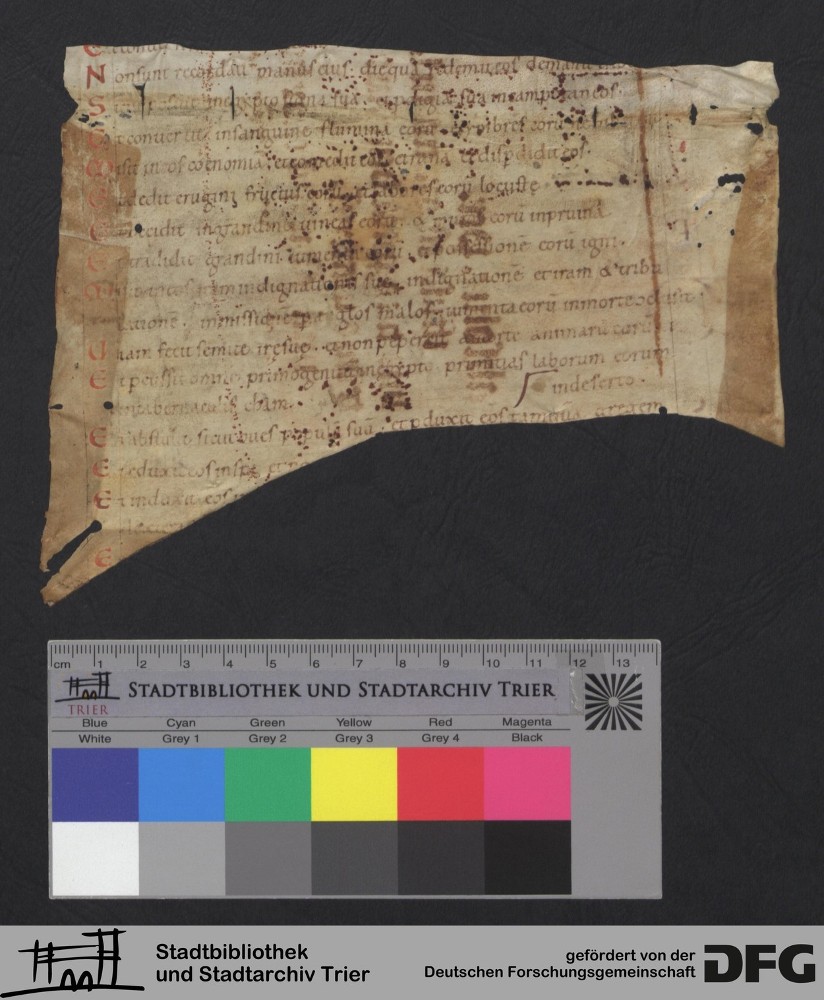 N onsunt recordati manus eius. die qua redemit eos de manu
S posuit in egypto signa sua. et prodigia sua in campo taneos.
convertit in sanguine flumina eorū
misit in eos coenomiā. et comedit eos et ranā et disp̄didit eos.
dedit erugini fructus eorū. et labores eorū locustę
occidit in grandine vineas eorū. & moros eorū in pruina
tradidit grandini iumenta eorū. et possessionē eorū igni.
misit in eos iram indignationis suę. indignationē et iram & tribu
lationē. inmissionē p angelos malos. iumenta eorū in morte
U iam fecit semitę irę suę. & non pepercit a morte animarū eorū
E t pcussit omne primogenitū in egypto primitias laborum eorum
in tabernaculis cham. in deserto.
E t abstulit sicut oves populū suū. et pduxit eos tamquā gregem
E t eduxit eos in spe
E t induxit eos
E
cm 1 2 3 4 5 6 7 8 9 10 11 12 13
STADTBIBLIOTHEK UND STADTARCHIV TRIER
TRIER
Blue Cyan Green Yellow Red Magenta
White Grey 1 Grey 2 Grey 3 Grey 4 Black
Stadtbibliothek
und Stadtarchiv Trier
gefördert von der
Deutschen Forschungsgemeinschaft
DFG